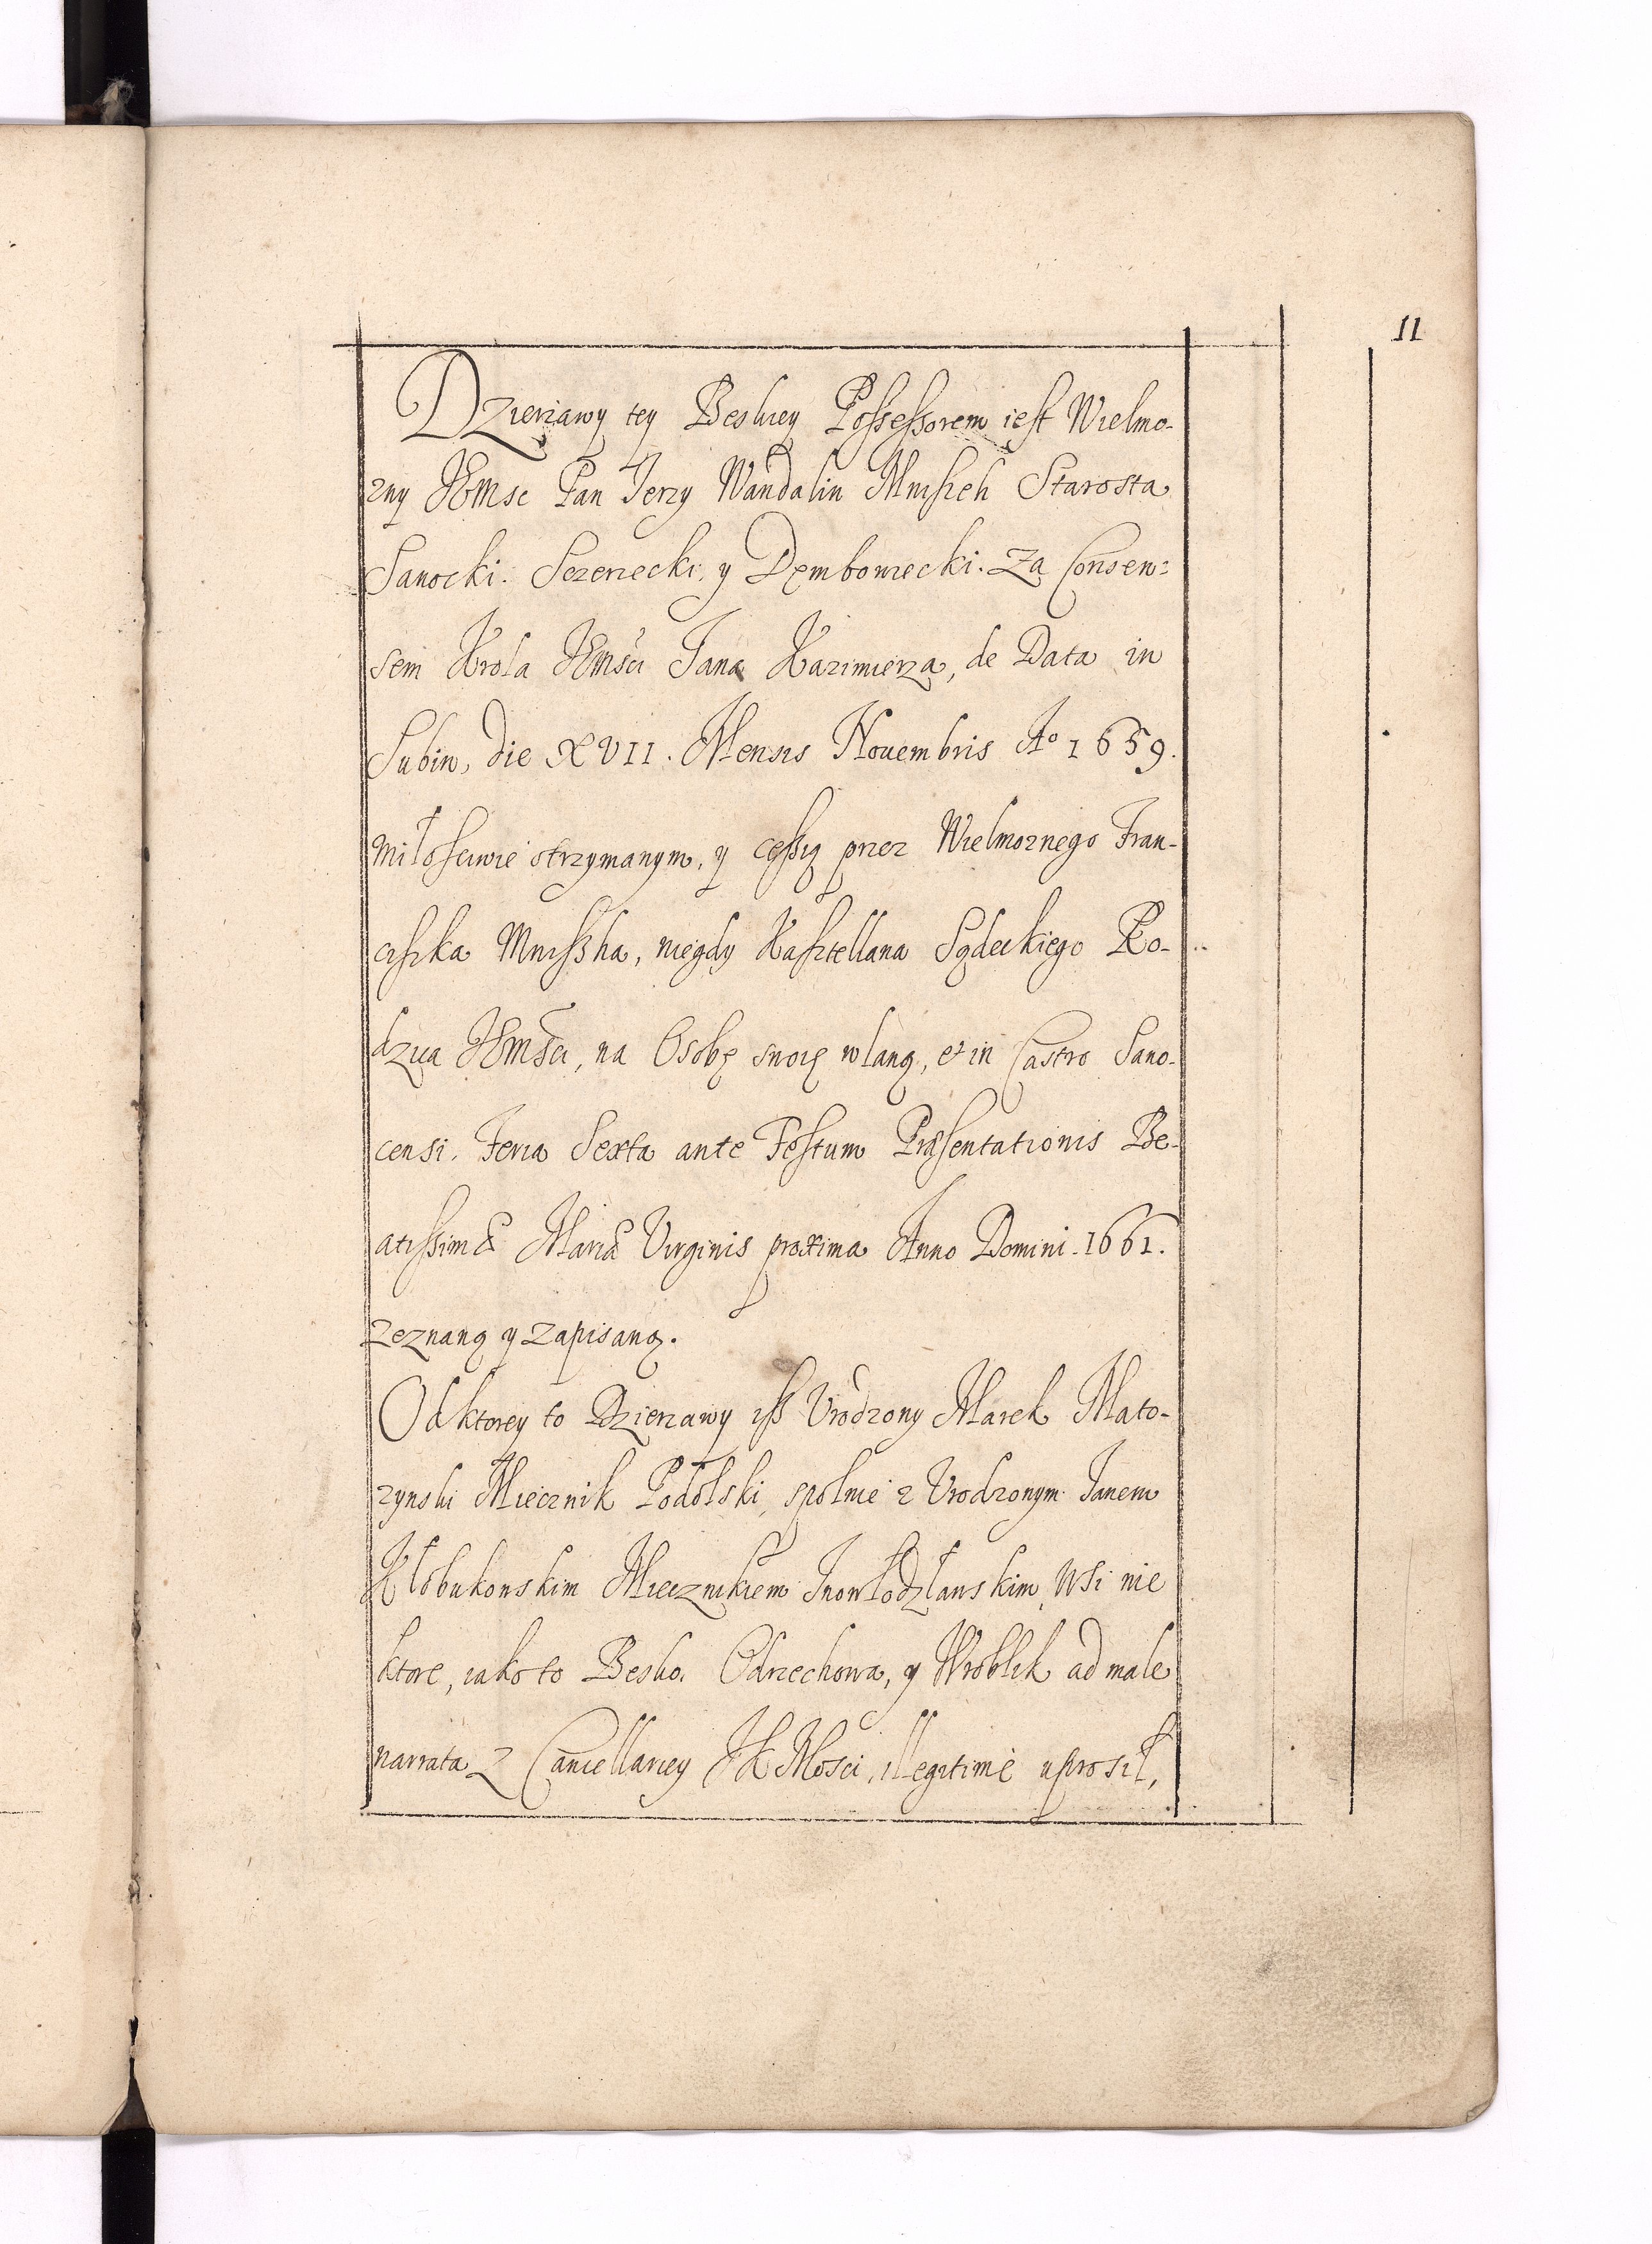 11
Dzierzawy tey Beskiey Possessorem iest Wielmo-
zny JEmsc Pan Jerzy Wandalin Mniszeh Starosta
Sanocki. Sczerzecki, y Dęmbowiecki. Za Consen=
sem Krola JEmści Jana Kazimierza, de Data in
Lubin, die XVII. Mensis Nouembris Ao 1659.
miłosciwie otrzymanym, y cęssią przez Wielmoznego Fran-
ciszka Mniszha, niegdy Kasztellana Sądeckiego Ro-
dzica JEmści, na Osobę swoię wlaną, et in Castro Sano-
censi. Feria Sexta ante Festum Præsentationis Be-
atissimæ Mariæ Virginis proxima Anno Domini. 1661.
zeznaną y zapisaną.
Od ktorey to Dzierzawy isz Vrodzony Marek Mato-
zynski Miecznik Podolski, spolnie z Vrodzonym Janem
Kłobukowskim Miecznikiem Inowłodzławskim, Wsi nie
ktore, iako to Besko. Odrzechowa, y Wroblik ad male
narrata z Cancellariey JK Mosci, illegitimè uprosił,